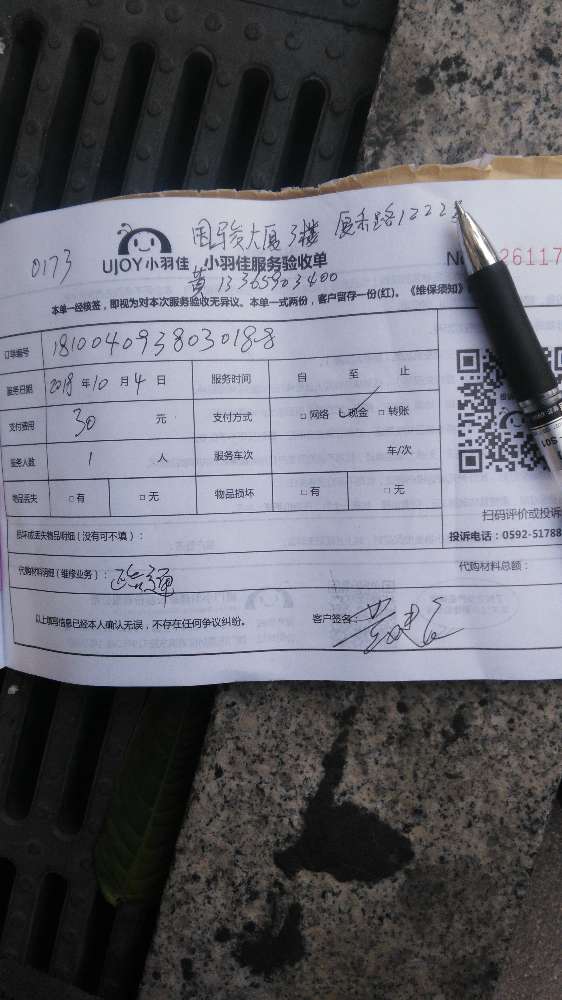 0173
国骏大厦3楼 厦禾路1222
UJOY小羽佳 小羽佳服务验收单
No 26117
黄 13365903400
本单一经核签，即视为对本次服务验收无异议。本单一式两份，客户留存一份(红)。《维保须知》
订单编号 1810040938030188
服务日期 2018 年 10 月 4 日 服务时间 自 至 止
支付费用 30 元 支付方式 □ 网络 ☑ 现金 □ 转账
服务人数 1 人 服务车次 车/次
物品丢失 □ 有 □ 无 物品损坏 □ 有 □ 无
扫码评价或投诉
损坏或丢失物品明细（没有可不填）：
投诉电话：0592-51788
代购材料明细（维修业务）：
代购材料总额：
以上填写信息已经本人确认无误，不存在任何争议纠纷。 客户签名：